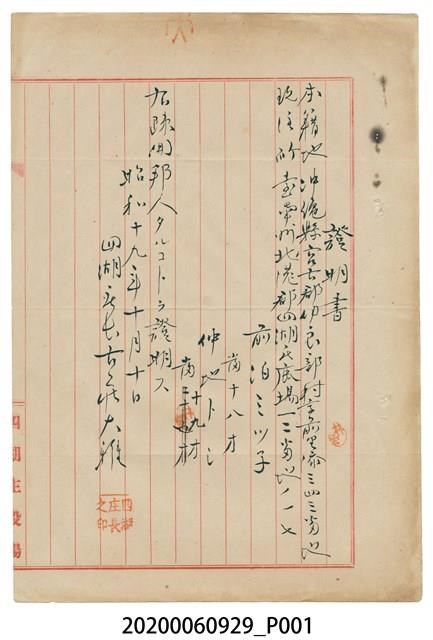 證明書
本籍地 沖縄縣宮古郡伊良部村字前里添三四三番地
現住所 臺南州北港郡四湖庄鹿場一二番地ノ一七
前泊ミツ子
當十八才
仲地トミ
當十九才
右疎開邦人タルコトヲ證明ス
昭和十九年十月十日
四湖庄長古
四湖庄長之印
四湖庄役場
20200060929_P001